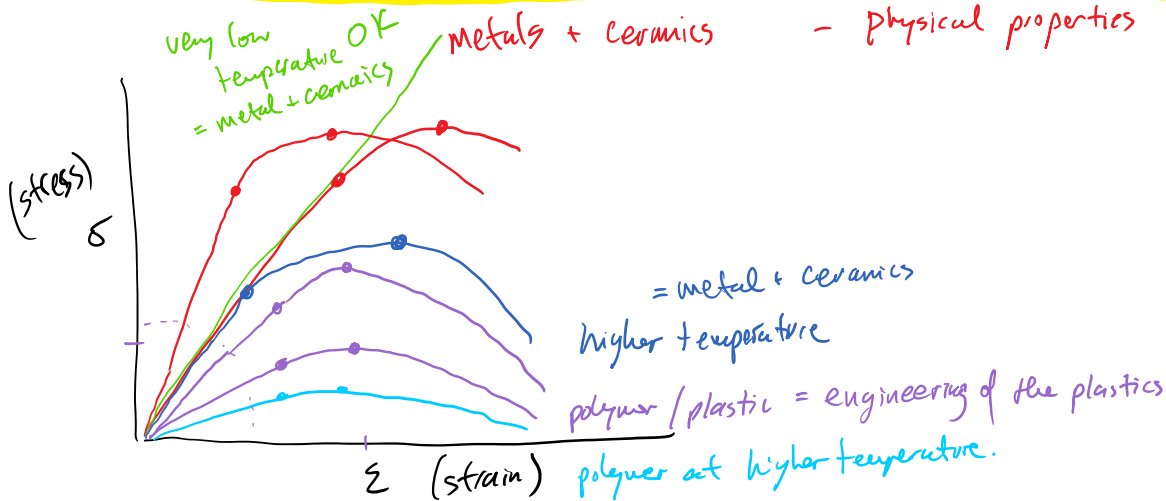 very low
temperature OK
= metal + cernaics
metals + ceramics - physical properties
(stress)
σ
= metal + ceramics
higher temperature
polymer / plastic = engineering of the plastics
ε (strain)
polymer at higher temperature.